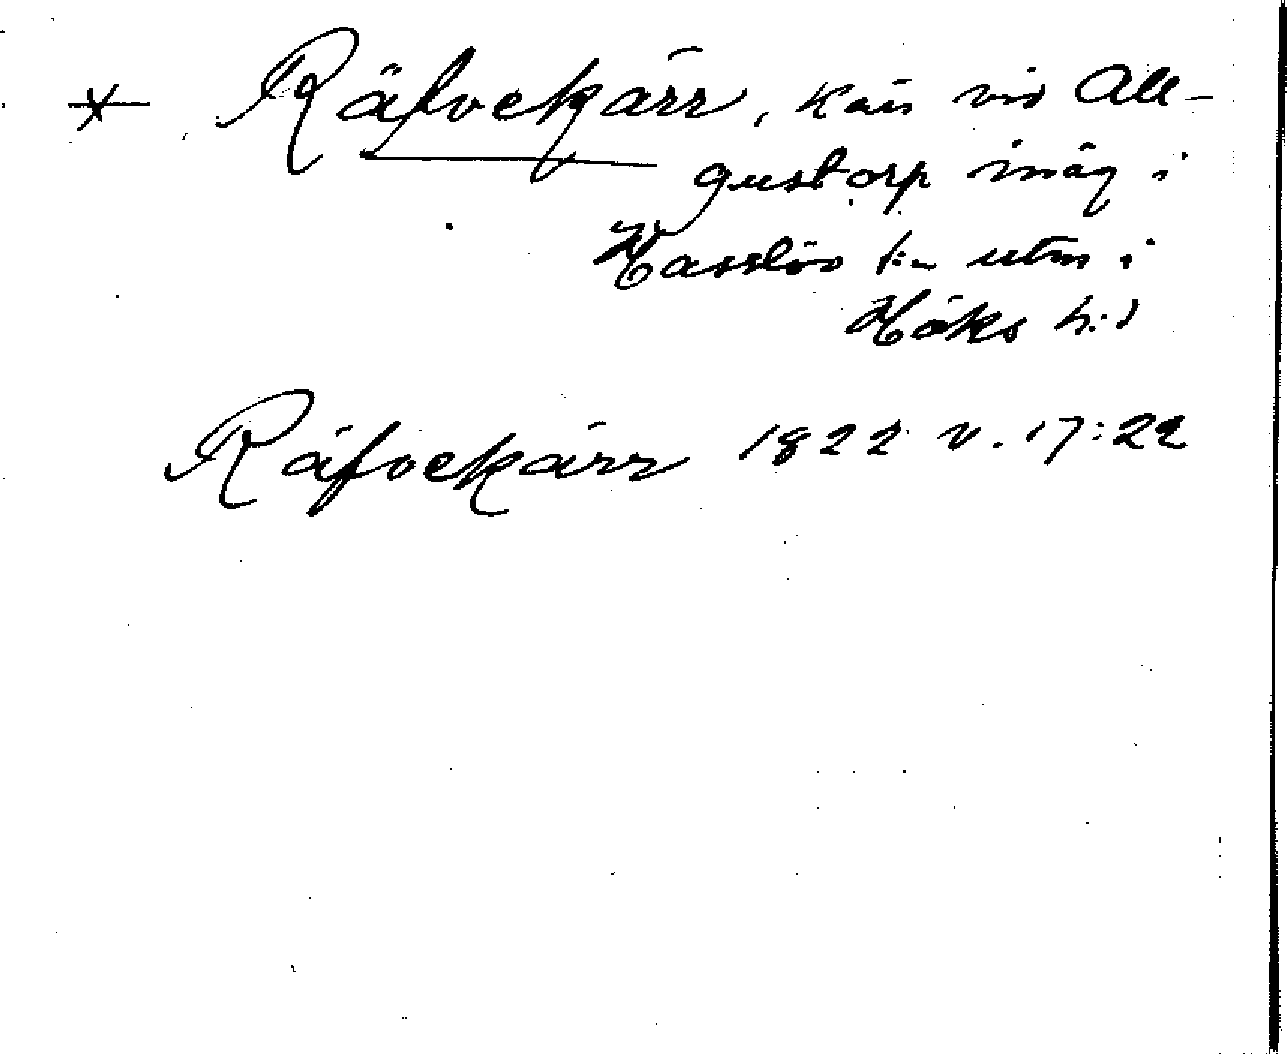 Räfvekärr, kärr vid All-
gustorp inäg i
Hasslöv sn utm i
Höks hd
Räfvekärr 1822 v. 17:22